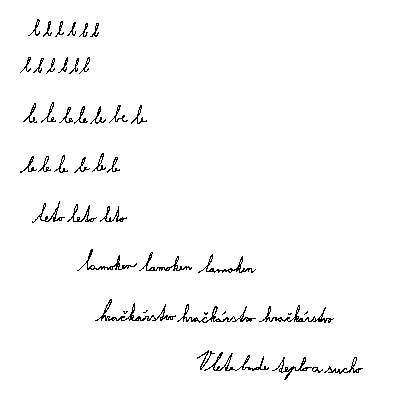 l l l l l l
l l l l l l
le le le le le le le
le le le le le le
leto leto leto
lamoken lamoken lamoken
hračkárstvo hračkárstvo hračkárstvo
V lete bude teplo a sucho